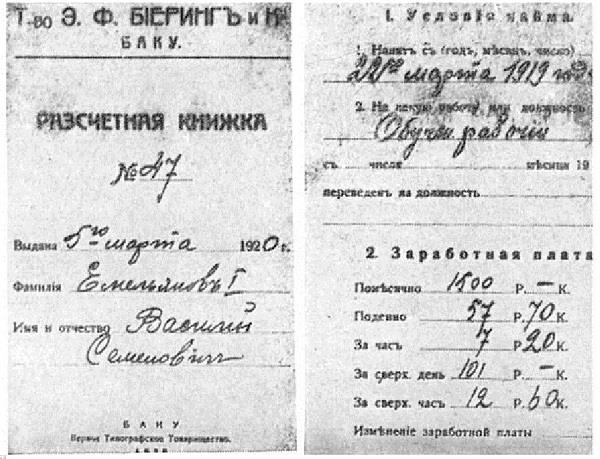 Т-во Э. Ф. БІЕРИНГЪ и К°
БАКУ.
РАЗСЧЕТНАЯ КНИЖКА
№ 47
Выдана 5го марта 1920 г.
Фамилія Емельяновъ I
Имя и отчество Василій
Семеновичъ
БАКУ
Первое Типографское Товарищество.
1. Условіе найма.
1. Нанятъ съ (годъ, мѣсяцъ, число)
22го марта 1919 года
2. На какую работу или должность
рабочій
съ числа мѣсяца 19
переведенъ на должность
2. Заработная плата
Помѣсячно 1500 Р. — К.
Поденно 57 Р. 70 К.
За часъ 7 Р. 20 К.
За сверх. день 101 Р. — К.
За сверх. часъ 12 Р. 60 К.
Измѣненіе заработной платы